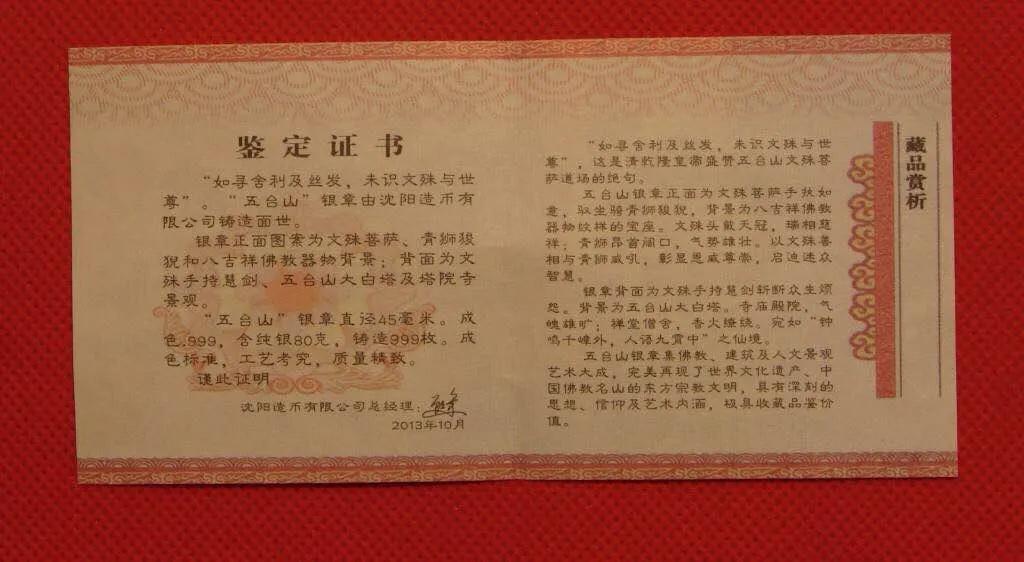 鉴定证书
“如寻舍利及丝发,未识文殊与世
尊”。“五台山”银章由沈阳造币有
限公司铸造面世。
银章正面图案为文殊菩萨、青狮狻
猊和八吉祥佛教器物背景;背面为文
殊手持慧剑、五台山大白塔及塔院寺
景观。
“五台山”银章直径45毫米。成
色.999,含纯银80克,铸造999枚。成
色标准,工艺考究,质量精致。
谨此证明
沈阳造币有限公司总经理:
2013年10月
藏品赏析
“如寻舍利及丝发,未识文殊与世
尊”,这是清乾隆皇帝盛赞五台山文殊菩
萨道场的绝句。
五台山银章正面为文殊菩萨手扶如
意,驭坐骑青狮狻猊,背景为八吉祥佛教
器物纹样的宝座。文殊头戴天冠,瑞相慈
祥;青狮昂首阔口,气势雄壮。以文殊善
相与青狮威吼,彰显恩威尊崇,启迪迷众
智慧。
银章背面为文殊手持慧剑斩断众生烦
怨。背景为五台山大白塔。寺庙殿院,气
魄雄旷;禅堂僧舍,香火缭绕。宛如“钟
鸣千嶂外,人语九霄中”之仙境。
五台山银章集佛教、建筑及人文景观
艺术大成,完美再现了世界文化遗产、中
国佛教名山的东方宗教文明,具有深刻的
思想、信仰及艺术内涵,极具收藏品鉴价
值。